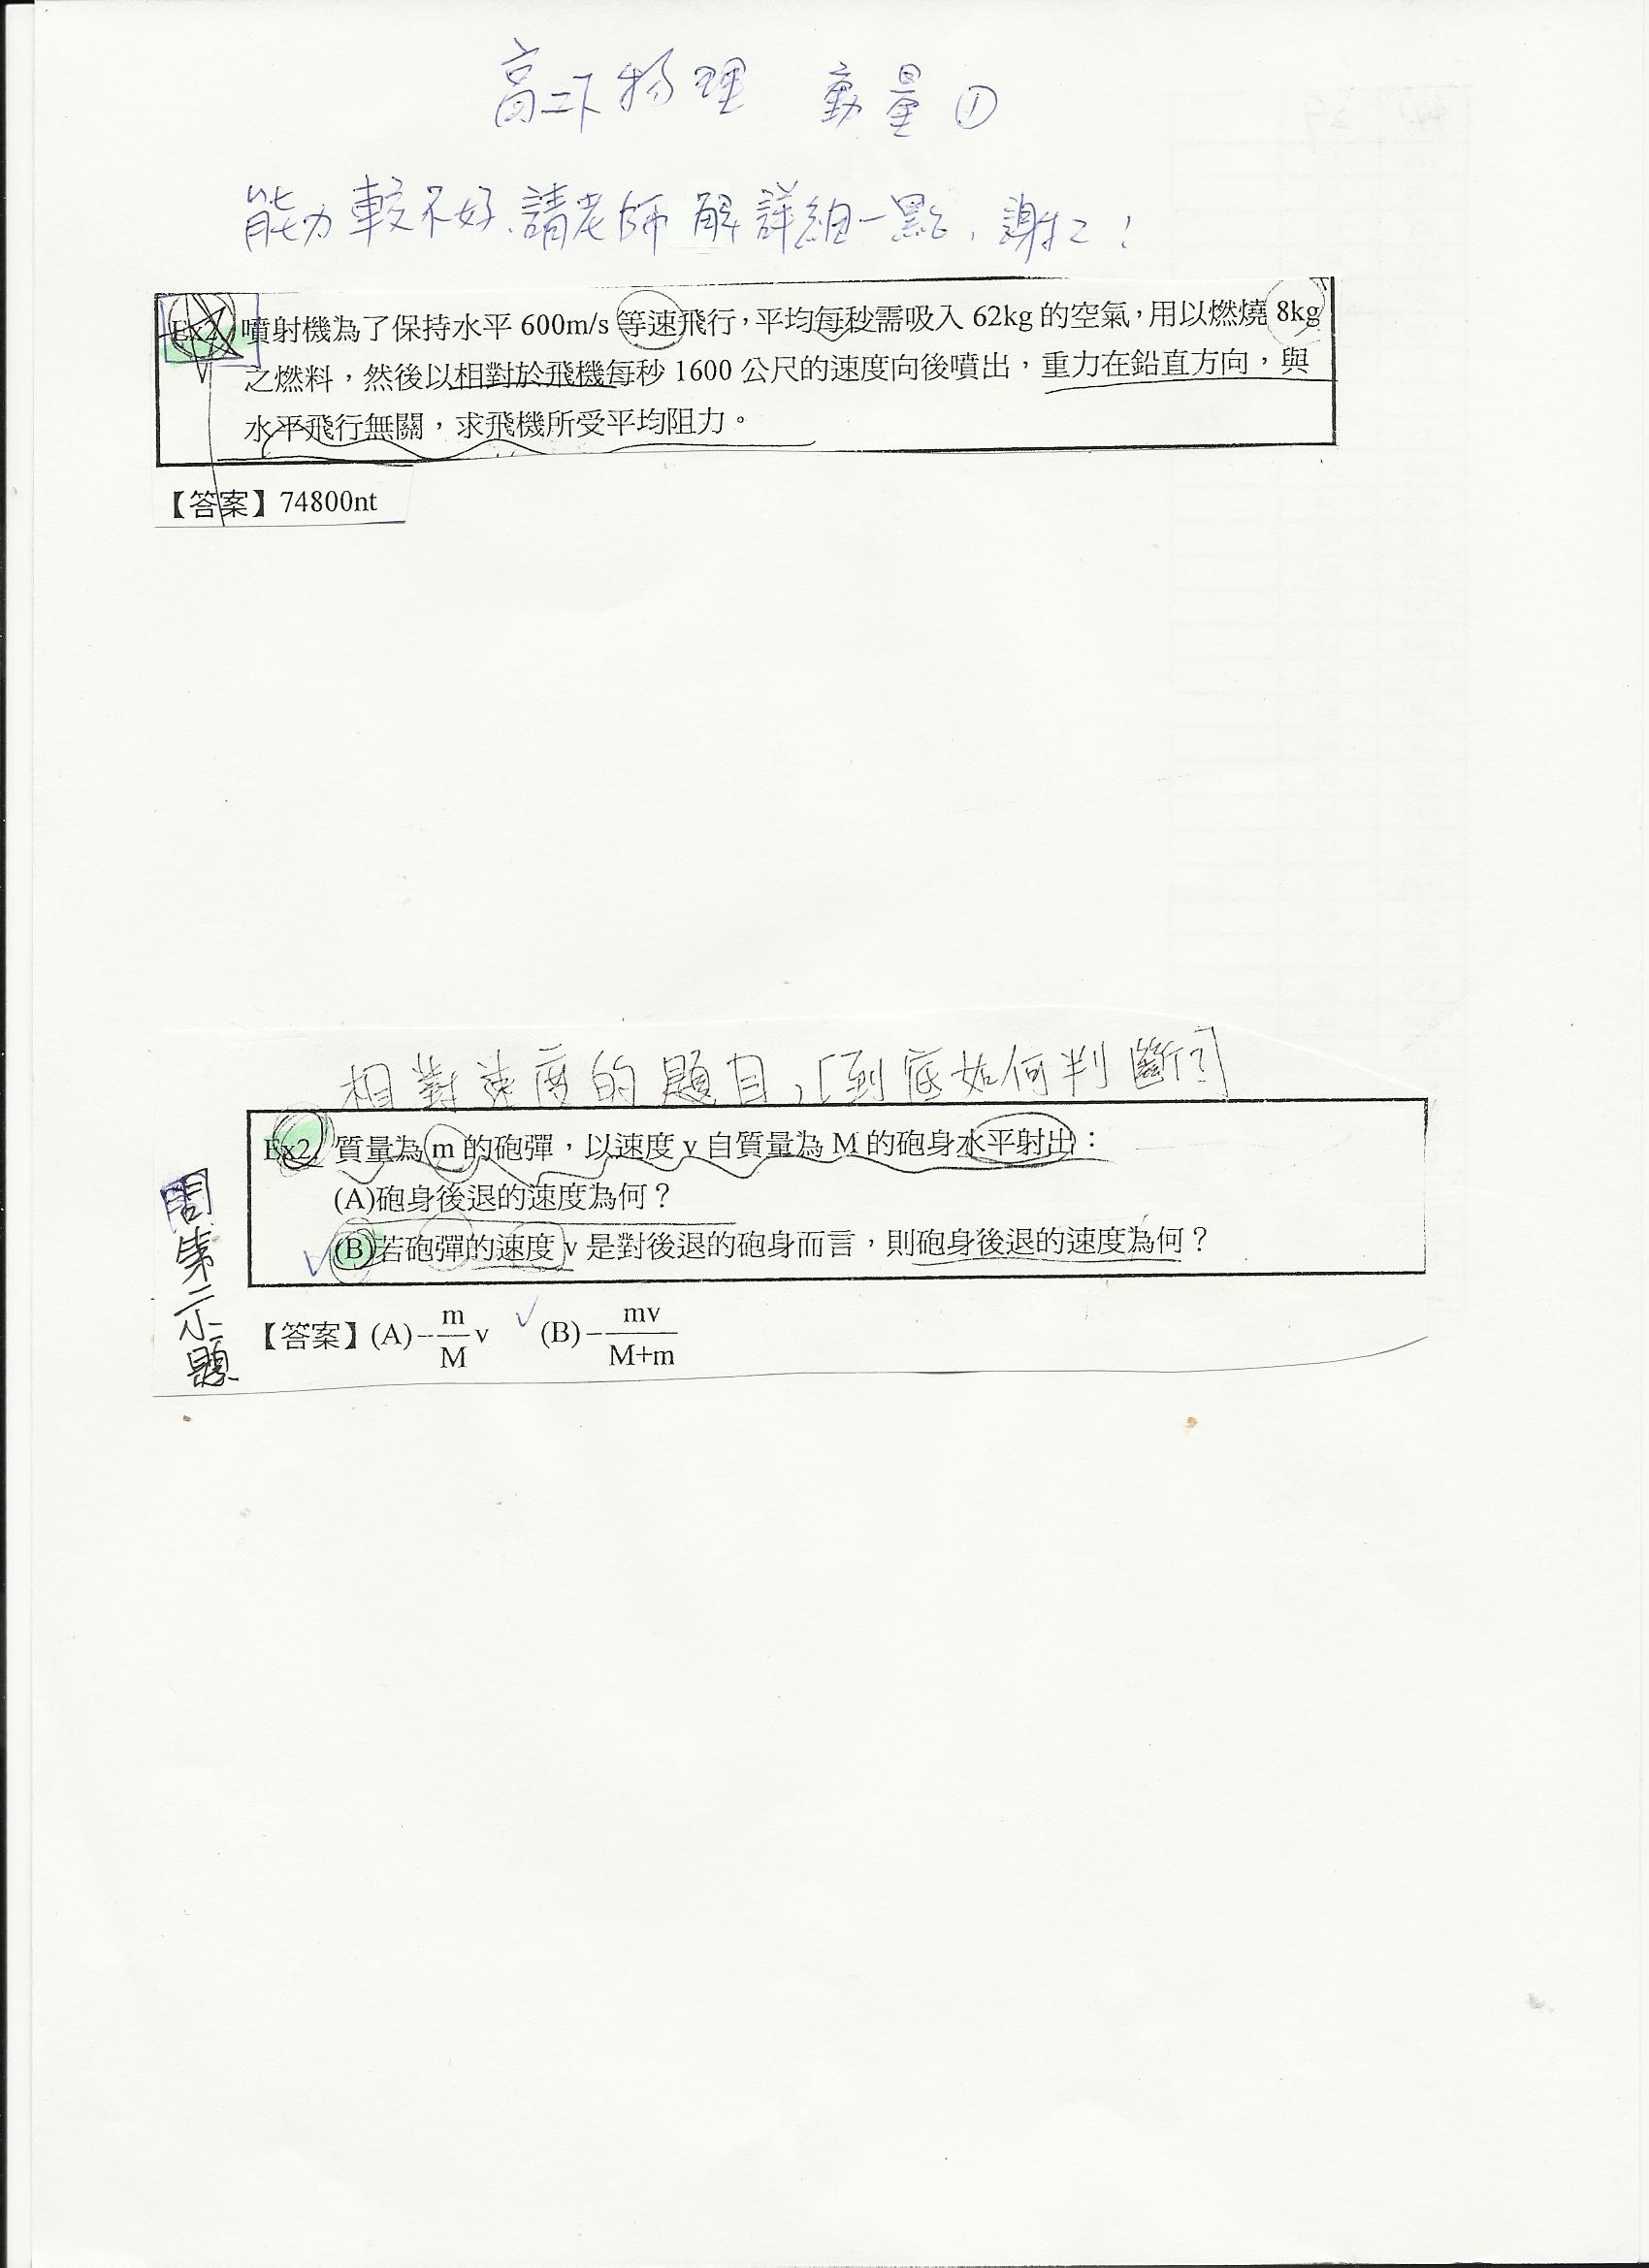 高二下物理 動量①
能力較不好、請老師解詳細一點，謝謝！
Ex2 噴射機為了保持水平 600m/s 等速飛行，平均每秒需吸入 62kg 的空氣，用以燃燒 8kg
之燃料，然後以相對於飛機每秒 1600 公尺的速度向後噴出，重力在鉛直方向，與
水平飛行無關，求飛機所受平均阻力。
【答案】74800nt
相對速度的題目，[到底如何判斷?]
Ex2 質量為 m 的砲彈，以速度 v 自質量為 M 的砲身水平射出：
(A)砲身後退的速度為何？
(B)若砲彈的速度 v 是對後退的砲身而言，則砲身後退的速度為何？
問第二小題
【答案】(A)−m/M v (B)−mv/M+m